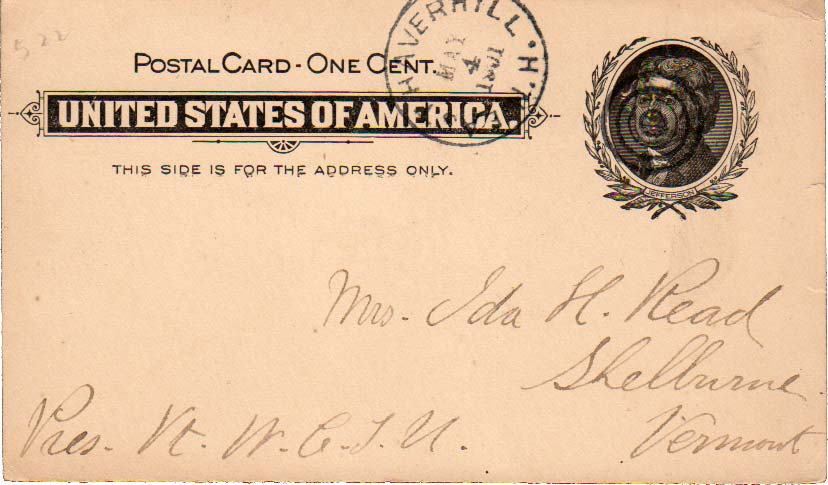 522
POSTAL CARD - ONE CENT.
UNITED STATES OF AMERICA.
THIS SIDE IS FOR THE ADDRESS ONLY.
HAVERHILL. N.H.
MAY
4
JEFFERSON
Mrs. Ida H. Read
Shelburne
Vermont
Pres. Vt. W. C. T. U.